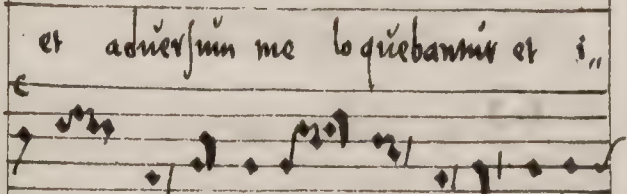 et adversum me loquebantur et i„